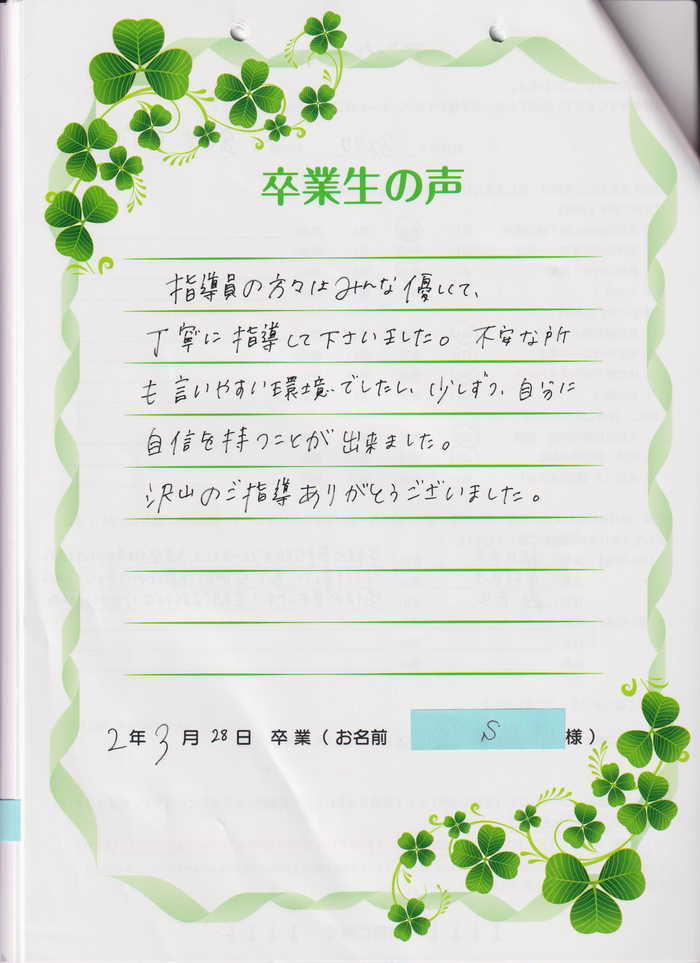 卒業生の声
指導員の方々はみんな優しくて、
丁寧に指導して下さいました。不安な所
も言いやすい環境でしたし、少しずつ、自分に
自信を持つことが出来ました。
沢山のご指導ありがとうございました。
2年3月28日 卒業(お名前 S 様)